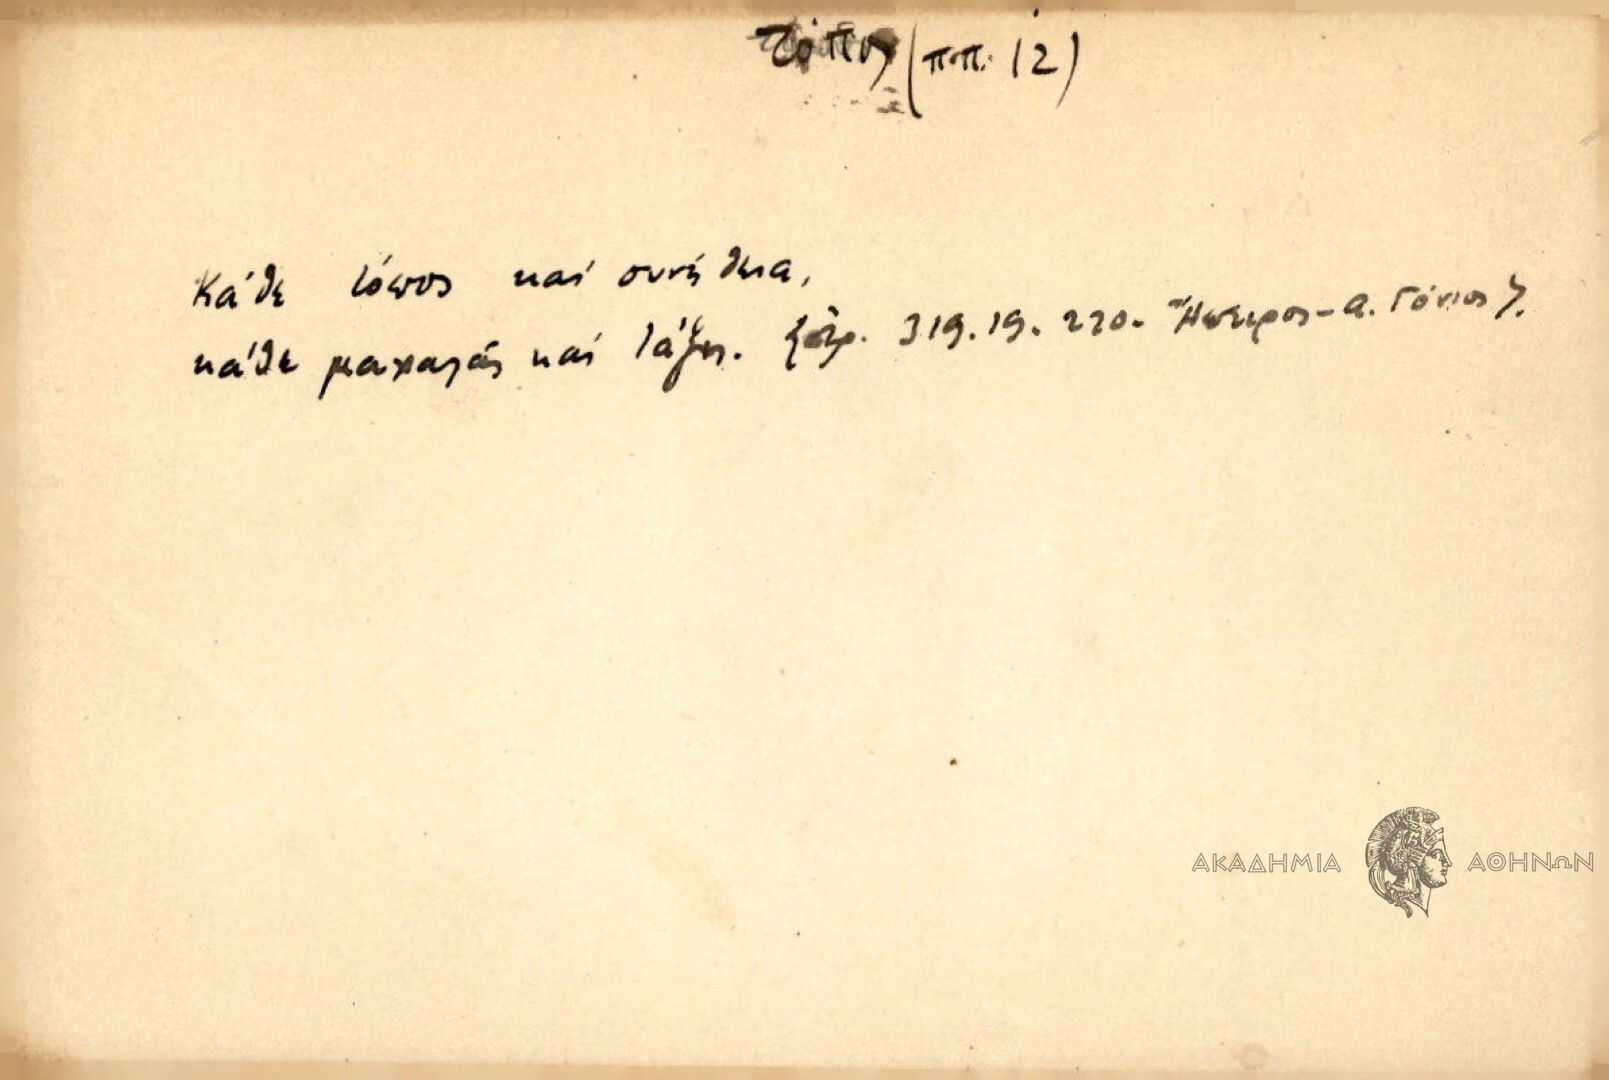 τόπος (ππ. 12)
Κάθε τόπος καὶ συνήθεια,
κάθε μαχαλᾶς καὶ τάξις. 319. 19. 270. Ἤπειρος - Α. Γόνιος).
ΑΚΑΔΗΜΙΑ ΑΘΗΝΩΝ